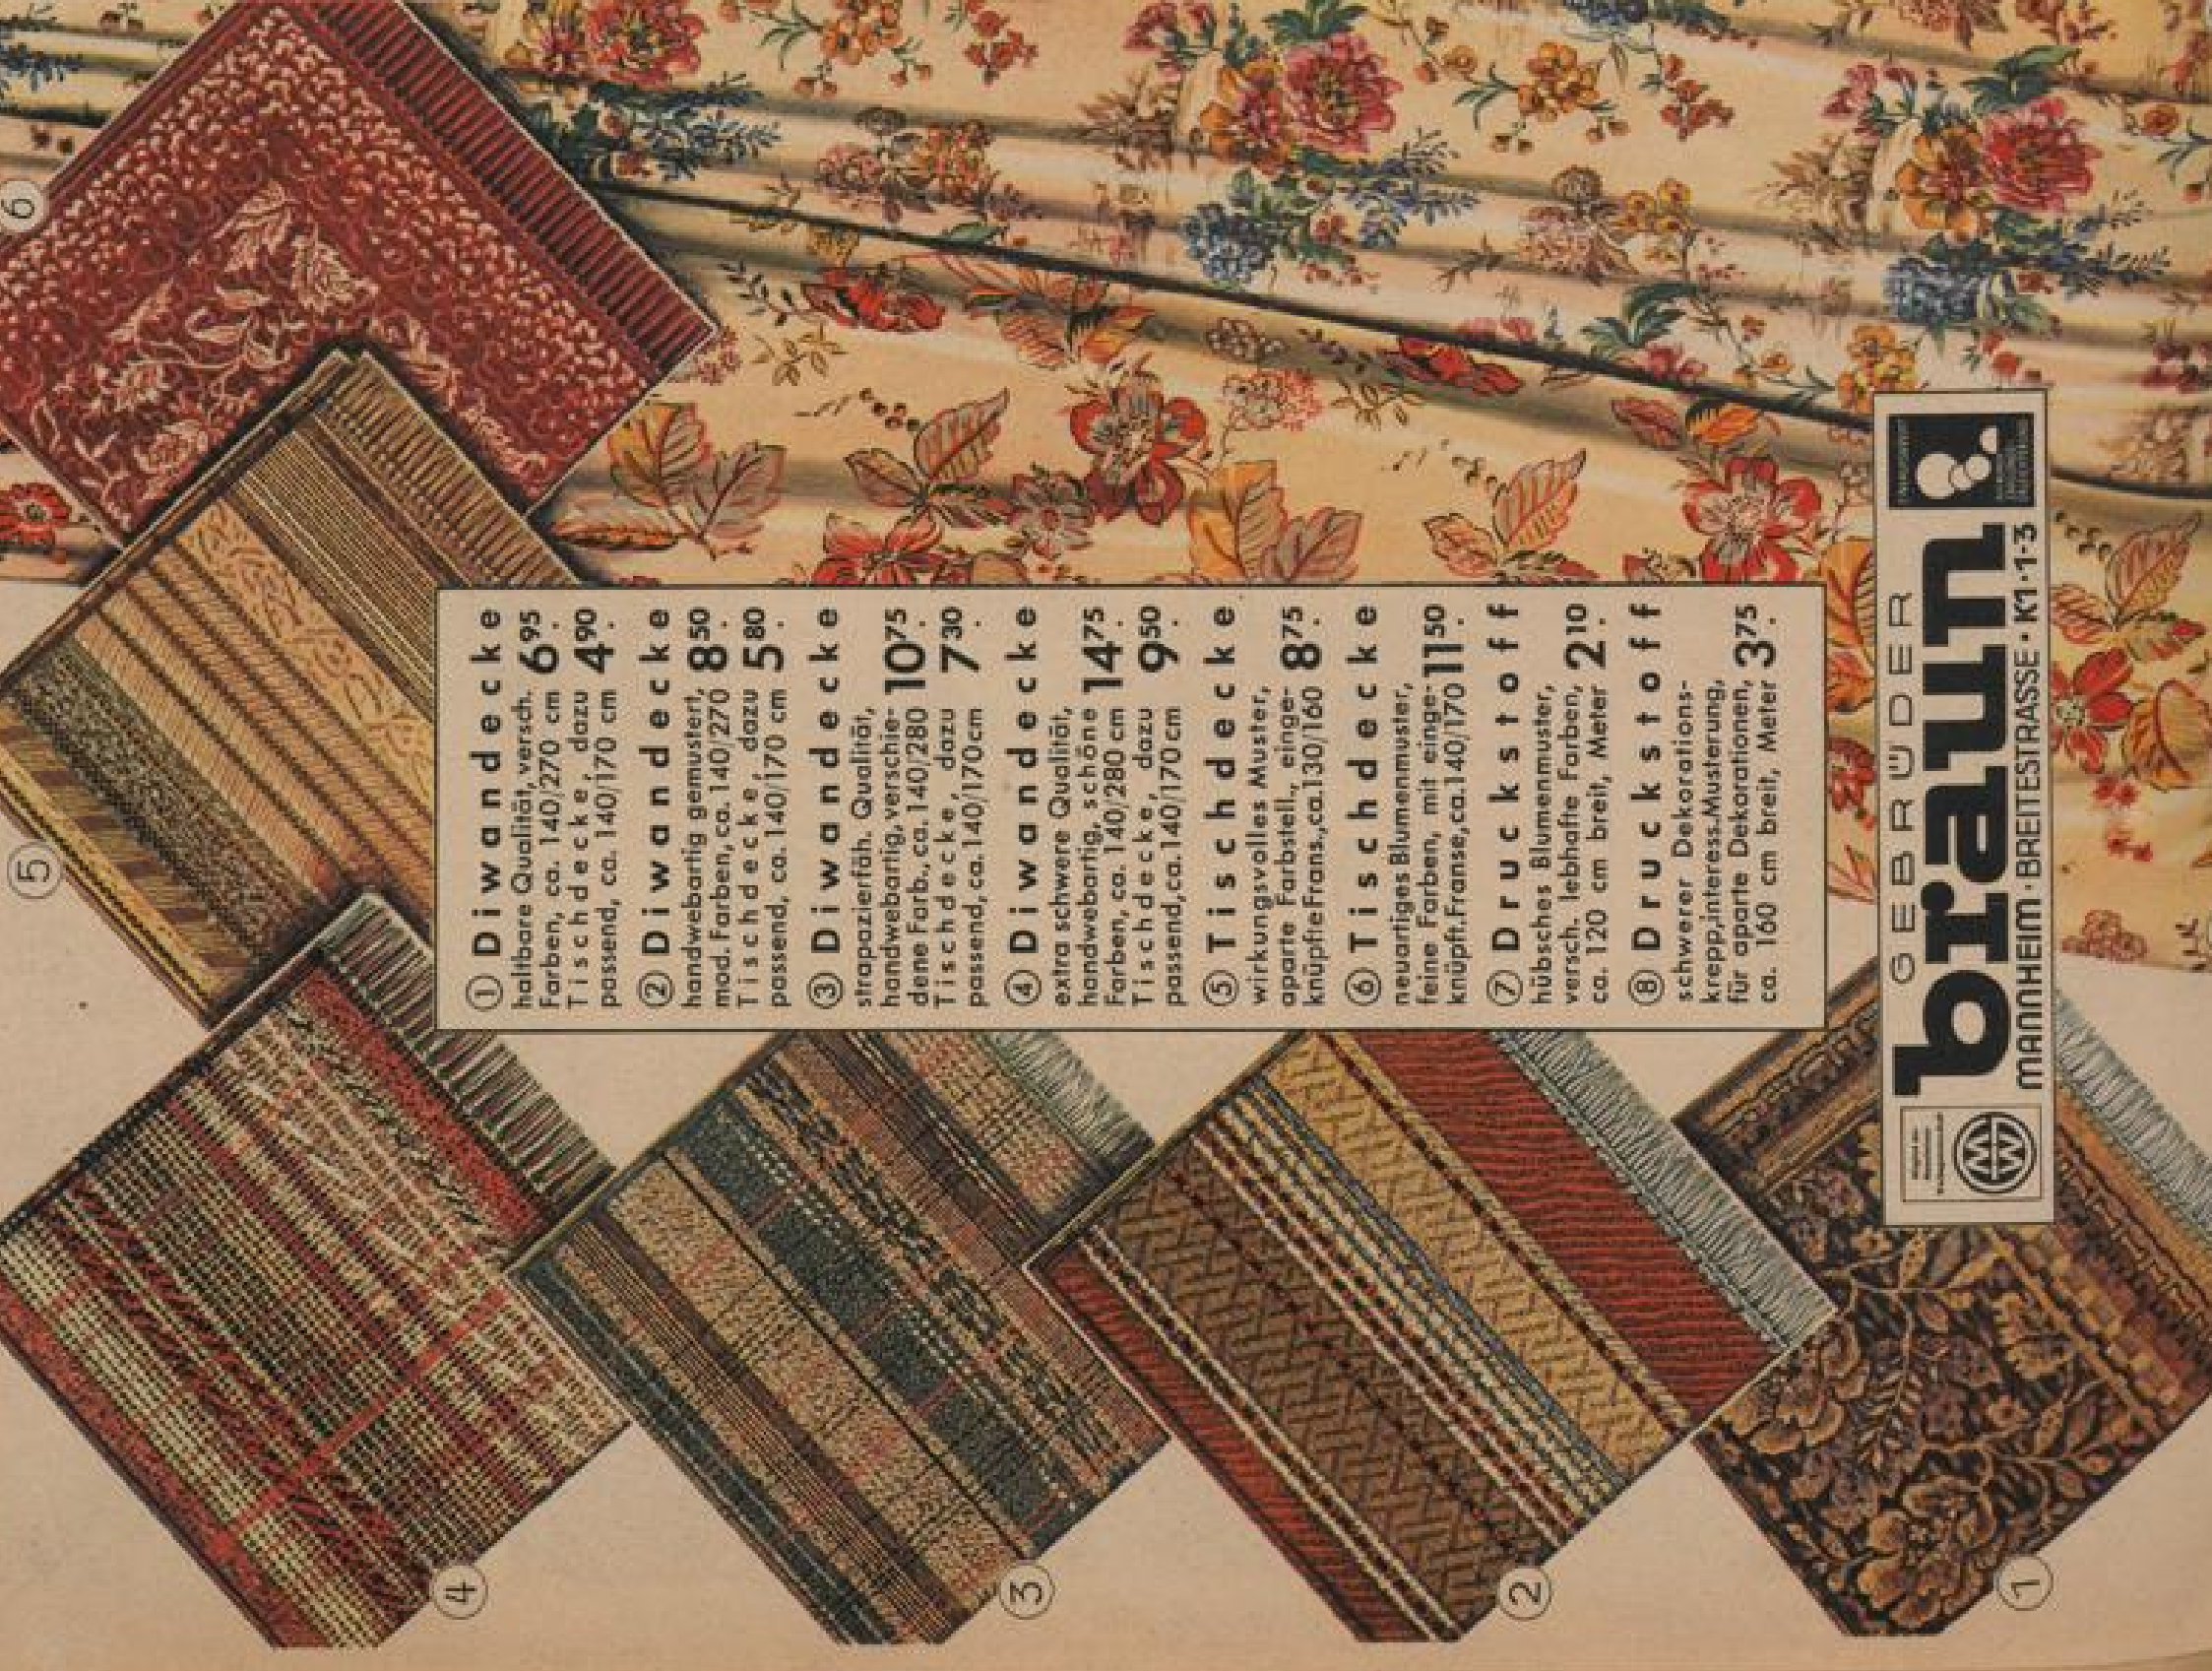 ① Diwandecke
haltbare Qualität, versch.
Farben, ca. 140/270 cm 6.95
Tischdecke, dazu
passend, ca. 140/170 cm 4.90
② Diwandecke
handwebartig gemustert,
mod. Farben, ca. 140/270 8.50
Tischdecke, dazu
passend, ca. 140/170 cm 5.80
③ Diwandecke
strapazierfäh. Qualität,
handwebartig, verschie-
dene Farb., ca. 140/280 10.75
Tischdecke, dazu
passend, ca. 140/170 cm 7.30
④ Diwandecke
extra schwere Qualität,
handwebartig, schöne
Farben, ca. 140/280 cm 14.75
Tischdecke, dazu
passend, ca. 140/170 cm 9.50
⑤ Tischdecke
wirkungsvolles Muster,
aparte Farbstell., einge-
knüpfte Frans., ca. 130/160 8.75
⑥ Tischdecke
neuartiges Blumenmuster,
feine Farben, mit einge-
knüpft. Franse, ca. 140/170 11.50
⑦ Druckstoff
hübsches Blumenmuster,
versch. lebhafte Farben,
ca. 120 cm breit, Meter 2.10
⑧ Druckstoff
schwerer Dekorations-
krepp, interess. Musterung,
für aparte Dekorationen,
ca. 160 cm breit, Meter 3.75
GEBRÜDER
braun
MANNHEIM · BREITESTRASSE · K1·1-3
6
5
4
3
2
1